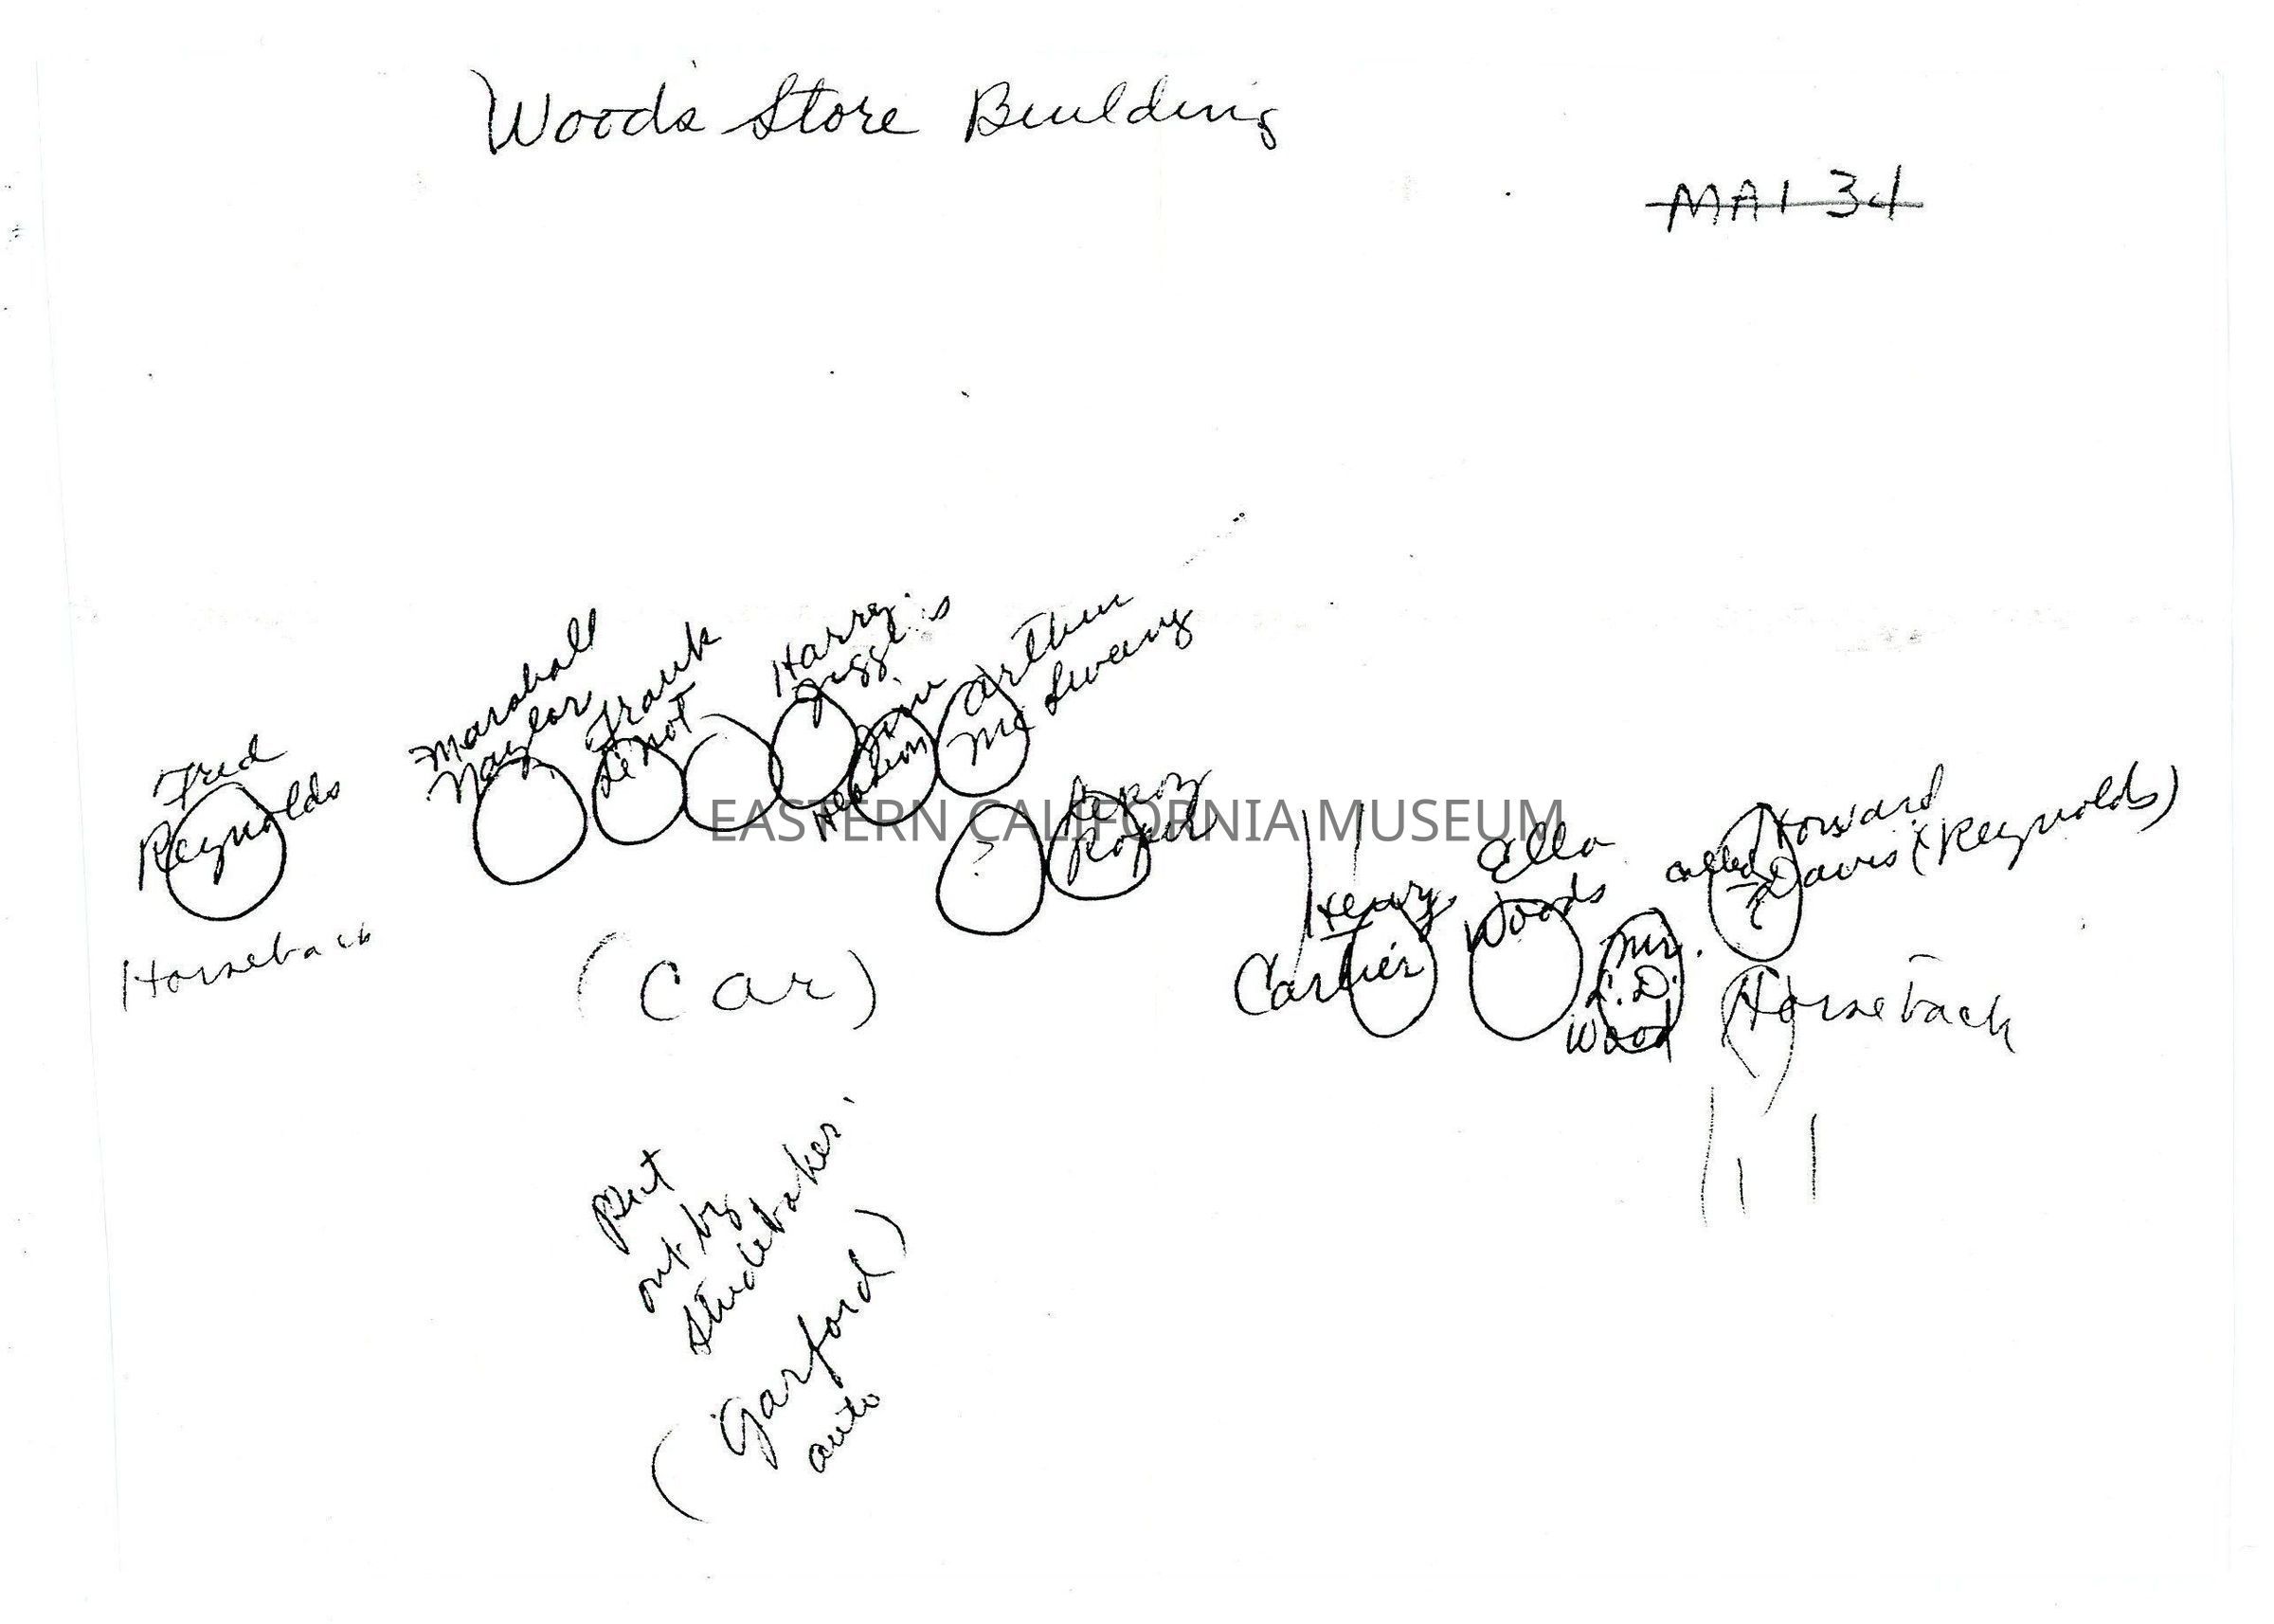 Woods Store Building
MAI 34
Fred
Reynolds
Horseback
Marshall
Naylor
Frank
Harry
Jim
Arthur
Mc
?
Leroy
Roper
EASTERN CALIFORNIA MUSEUM
(Car)
Henry
Ella
Woods
Mr.
Wood
called
Howard
Davis (Reynolds)
Horseback
Put
out by
Studebaker.
(Garford)
auto